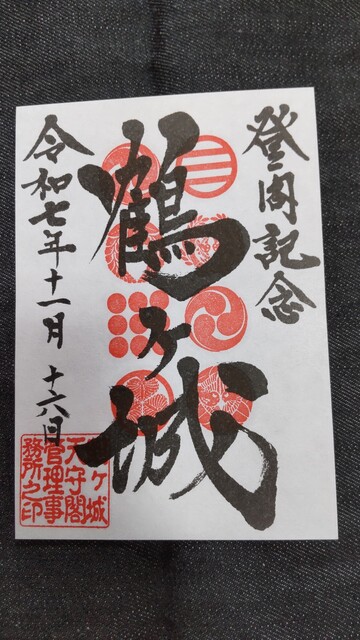 登閣記念
鶴ヶ城
令和七年十一月十六日
鶴ヶ城
天守閣
管理事
務所之印